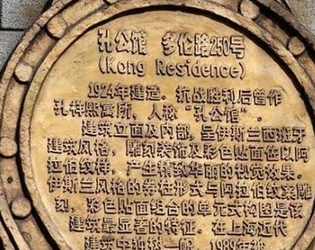 孔公馆 多伦路250号
(Kong Residence)
1924年建造。抗战胜利后曾作
孔祥熙寓所，人称“孔公馆”。
建筑立面及内部，呈伊斯兰西班牙
建筑风格，雕刻装饰及彩色贴面佐以阿
拉伯纹样，产生精致华丽的视觉效果。
伊斯兰风格的券柱形式与阿拉伯纹案雕
刻、彩色贴面组合的单元式构图是该
建筑最显著的特征。在上海近代
建筑中独树一帜。1989年